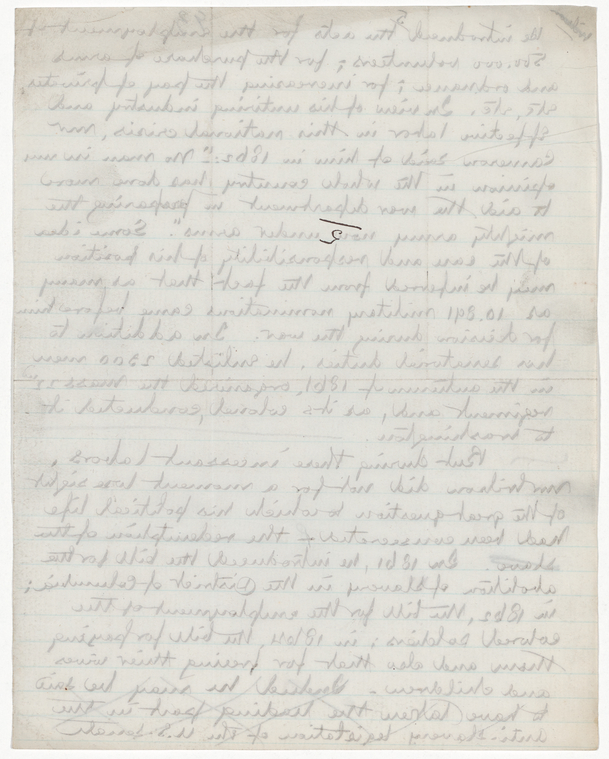 He introduced the acts for the employment of
500.000 volunteers; for the purchase of arms
and ordnance; for increasing the pay of privates,
etc, etc. In view of his untiring industry and
effective labor in this national crisis, Mr
Cameron said of him in 1862: "No man in my
opinion in the whole country, has done more
to aid the war department in preparing the
mighty army now under arms". Some idea
of the care and responsibility of his position
may be inferred from the fact that as many
as 10.891 military nominations came before him
for decision during the war. In addition to
his senatorial duties, he enlisted 2300 men
in the autumn of 1861, organized the Mass 22d
regiment and, as its colonel, conducted it
to Washington.
But during these incessant labors,
Mr Wilson did not for a moment lose sight
of the great question to which his political life
had been consecrated - the redemption of the
slave. In 1861, he introduced the bill for the
abolition of slavery in the District of Columbia;
in 1862, the bill for the employment of the
colored soldiers; in 1864, the bill for paying
them and also that for freeing their wives
and children. Indeed he may be said
to have taken the leading part in the
anti-slavery legislation of the U.S. Senate